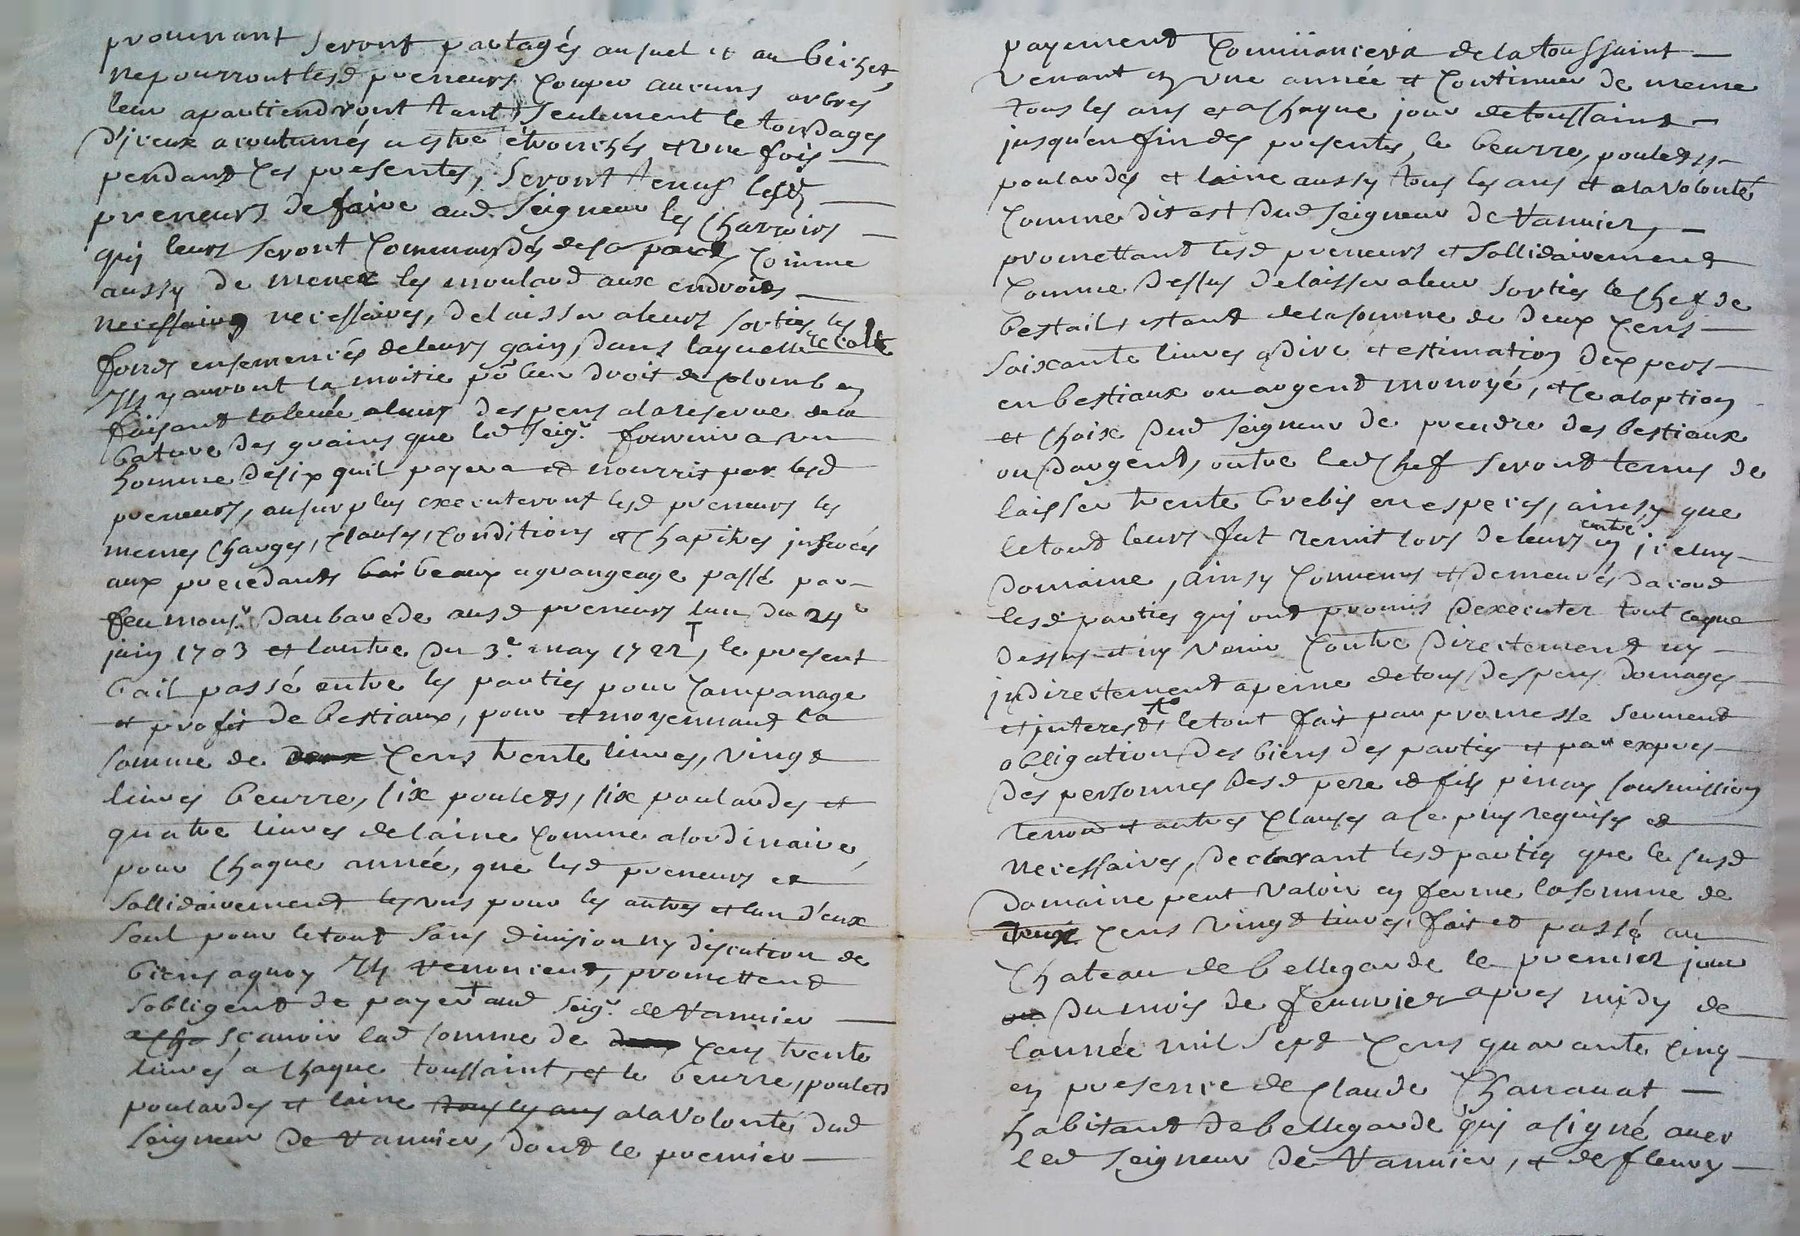 provenant seront partagés au suel et au bichet,
ne pourront lesd preneurs couper aucuns arbres
leur apartiendront tant seulement le tondages
d'jceux acoutumés a estre étronchés et une fois
pendant ces presentes, seront tenus lesd
preneurs de faire aud Seigneur les charrois
quj leurs seront commandés de sa part comme
aussy de mener les moulard aux endroids
necessaires, delaisser a leurs sorties les
fonds ensemencés de leurs gain, dans laquelle recolte
Ils y auront la moitié po.r leur droit de colomb en
faisant la levée a leurs despens a la reserve de la
bature des grains que led seig.r fournira un
homme de six quil payera et nourris par lesd
preneurs, au surplus executeront lesd preneurs les
memes charges, clauses, conditions et chapitres jnserés
aux precedants beaux a grangeage passé par
feu mons.r Daubarede ausd preneurs lun du 24e
juin 1703 et lautre du 3.e may 1722, le present
bail passé entre les parties pour campanage
et profit de bestiaux, pour et moyennant la
somme de cens trente livres, vingt
livres beurre, six poulets, six poulardes et
quatre livres de laine comme a lordinaire,
pour chaque année, que lesd preneurs et
sollidairement les uns pour les autres et lun d'eux
seul pour le tout sans division ny discution de
biens a quoy Ils renoncent, promettent
sobligent de payer aud Seig.r de Vannier
scavoir lad somme de cens trente
livres a chaque toussaint, et le beurre, poulets
poulardes et laine tous les ans a la volonté dud
Seigneur de Vannier, dont le premier
payement commancera de la toussaint
venant en une année et continuer de meme
tous les ans et a chaque jour de toussaint
jusquen fin des presentes, le beurre, poulets
poulardes et laine aussy tous les ans et a la volonté
comme dit est dud Seigneur de Vannier,
promettant lesd preneurs et sollidairement
comme dessus delaisser a leur sorties le chef de
bestail estant de la somme de deux cens
soixante livres a dire et estimation dexpers
en bestiaux ou argent monoyé, et a loption
et choix dud Seigneur de prendre des bestiaux
ou dargent, outre led chef seront tenus de
laisser trente brebis en especes, ainsy que
le tout leurs fut remit lors de leurs entré en jceluy
domaine, ainsy convenus et demeurés dacord
lesd parties quj ont promis dexecuter tout ce que
dessus et ny venir contre directement ny
jndirectement a peine de tous despens domages
et jnterest, le tout fait par promesse serment
obligation des biens des parties et par expres
des personnes desd pere et fils pinay soumission
renon et autres clauses a ce plus requises et
necessaires, declarant lesd parties que le susd
domaine peut valoir en ferme la somme de
cens vingt livres, fait et passé au
Chateau de bellegarde le premier jour
du mois de feuvrier apres midy de
lannée mil sept cens quarante cinq
en presence de Claude Charranat
habitant de bellegarde quj a signé avec
led Seigneur de Vannier, et de fleury